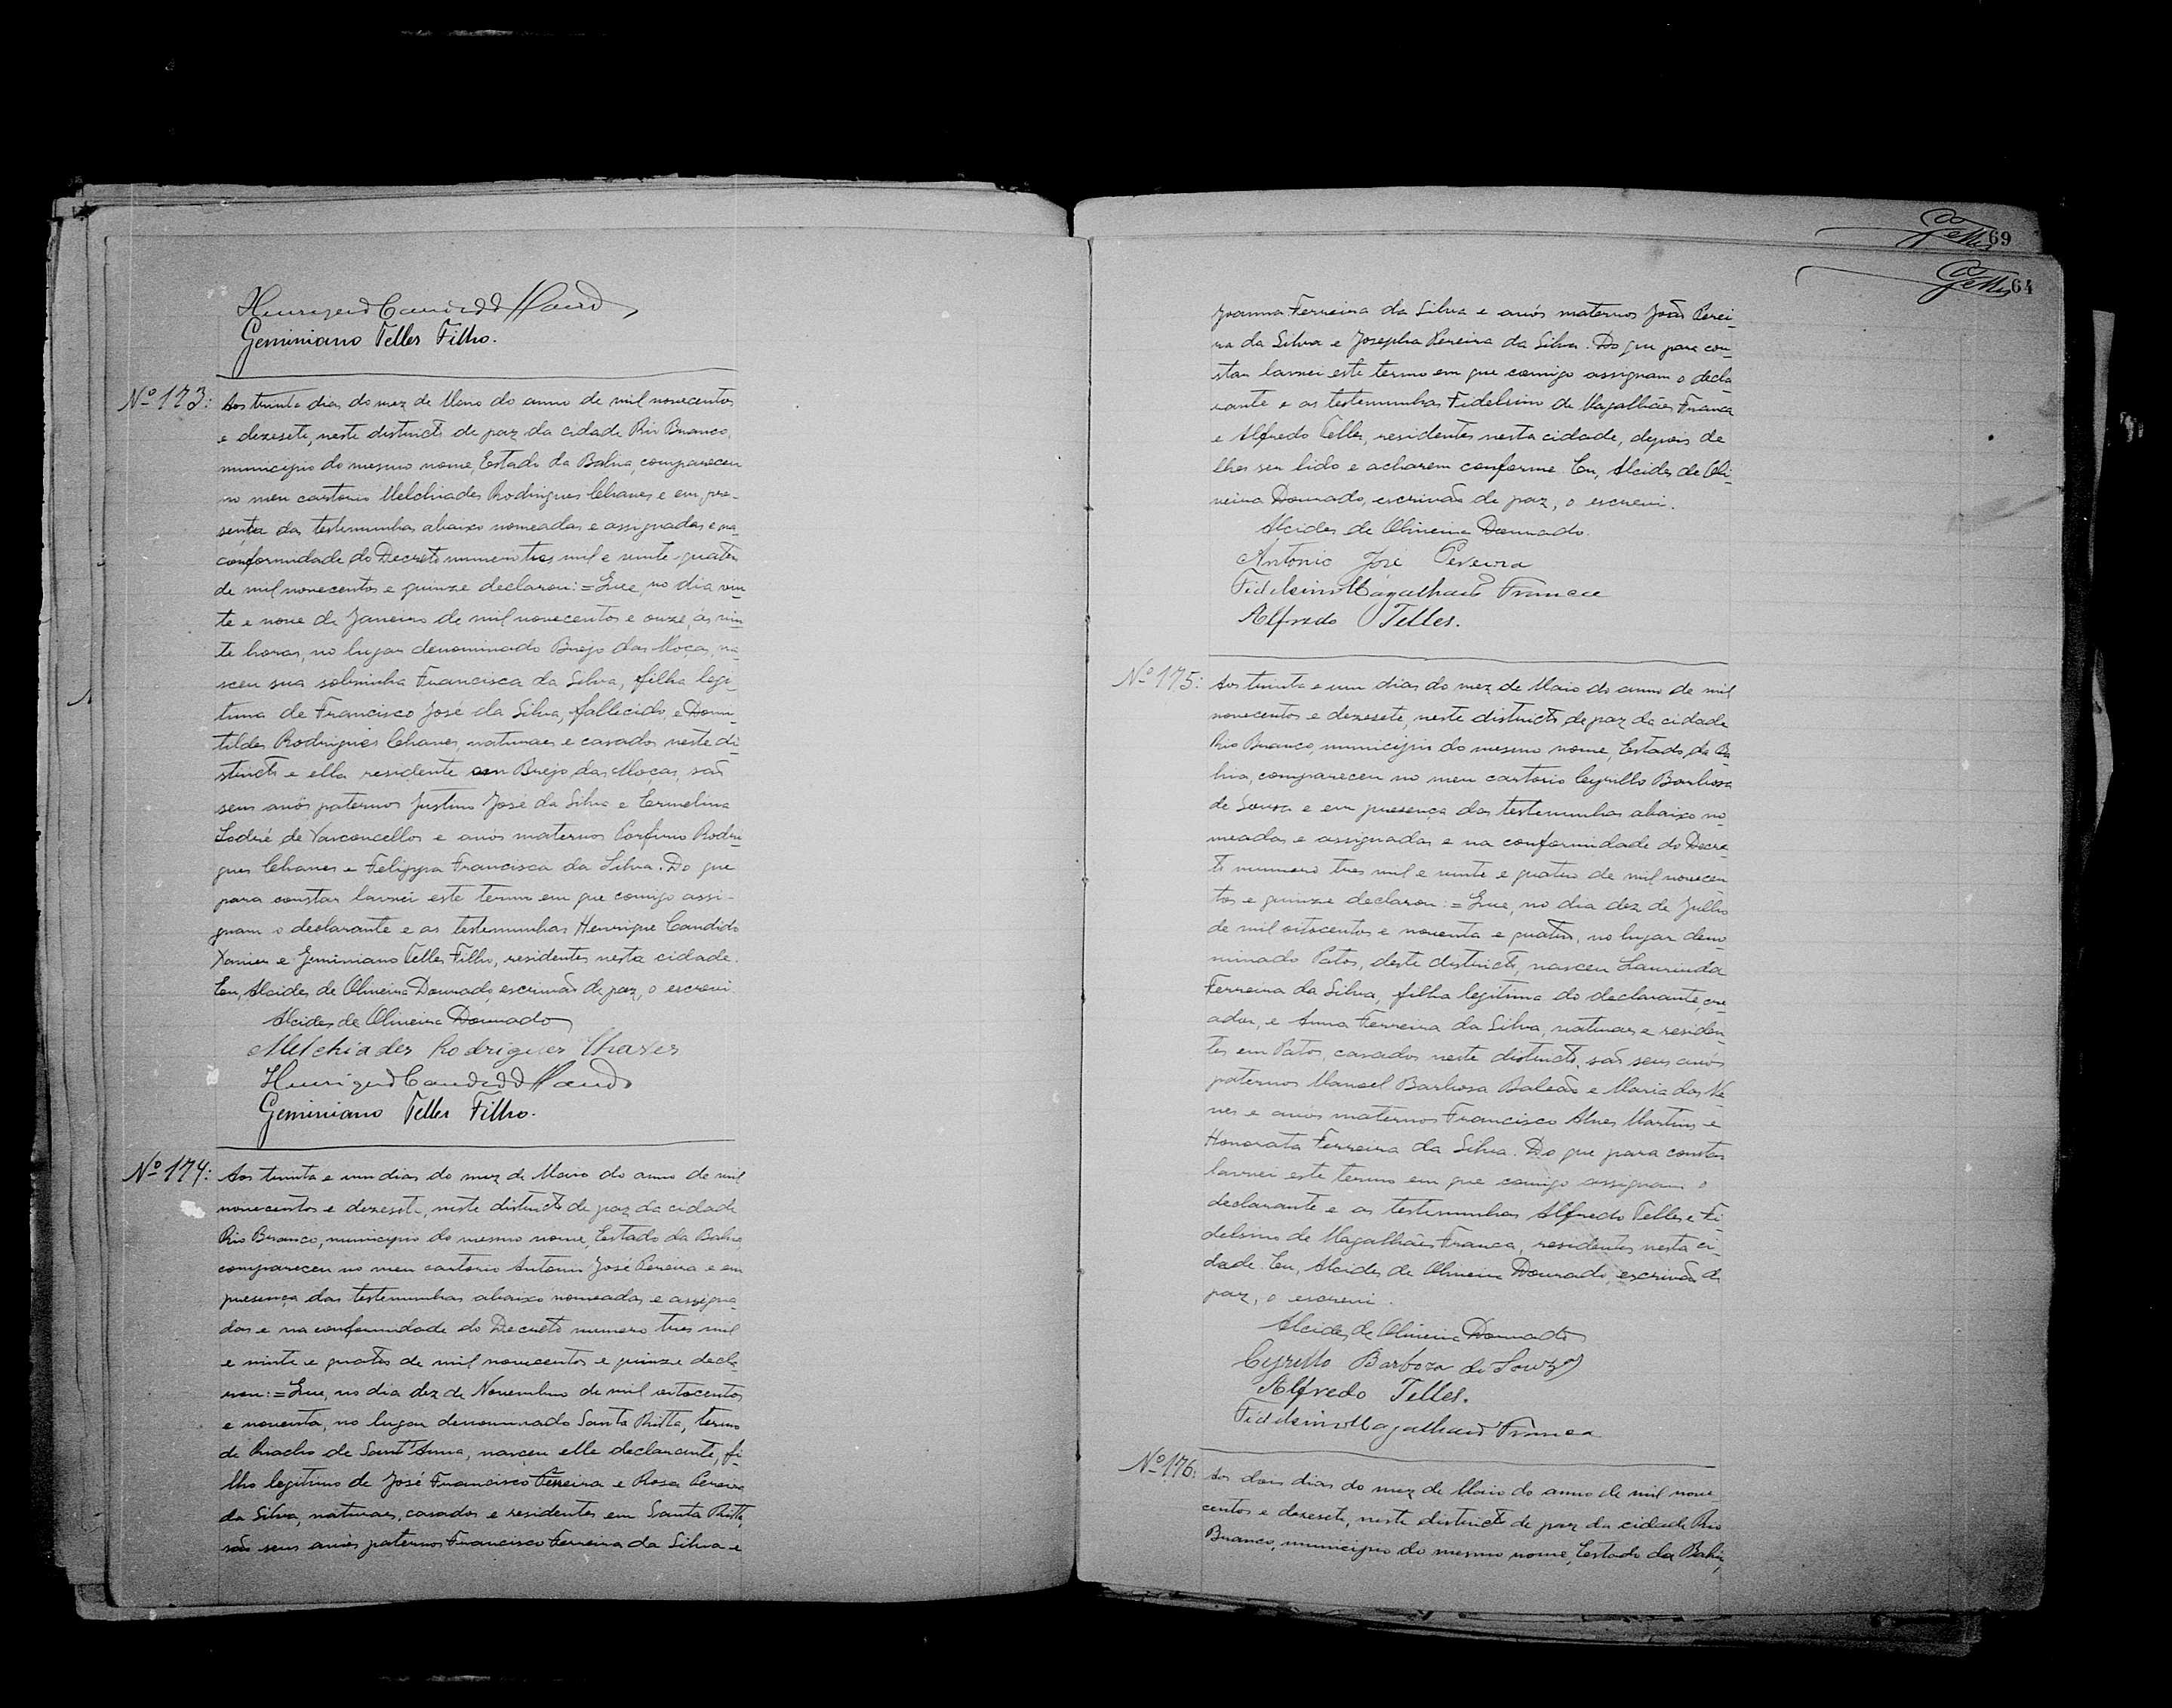 Henrique Candido
Geminiano Telles Filho.
Nº 173:
Aos trinta dias do mez de Maio do anno de mil novecentos
e dezesete, neste districto de paz da cidade Rio Branco,
municipio do mesmo nome, Estado da Bahia, compareceu
no meu cartorio Melchiades Rodrigues Chaves e em pre-
sença das testemunhas abaixo nomeadas e assignadas e na
conformidade do Decreto numero tres mil e vinte quatro
de mil novecentos e quinze declarou: = Que, no dia vin
te e nove de Janeiro de mil novecentos e onze, ás vin
te horas, no lugar denominado Brejo das Moças, na-
sceu sua sobrinha Francisca da Silva, filha legi-
tima de Francisco José da Silva, fallecido, e Domi-
tildes Rodrigues Chaves, naturaes e casados neste di-
stricto e ella residente em Brejo das Moças, são
seus avós paternos Justino José da Silva e Ermelina
Sodré de Vasconcellos e avós maternos Porfirio Rodri-
gues Chaves e Felippa Francisca da Silva. Do que
para constar lavrei este termo em que comigo assi-
gnam o declarante e as testemunhas Henrique Candido
Xavier e Geminiano Telles Filho, residentes nesta cidade.
Eu, Alcides de Oliveira Dourado, escrivão de paz, o escrevi.
Alcides de Oliveira Dourado
Melchiades Rodrigues Chaves
Henrique Candido
Geminiano Telles Filho.
Nº 174:
Aos trinta e um dias do mez de Maio do anno de mil
novecentos e dezesete, neste districto de paz da cidade
Rio Branco, municipio do mesmo nome, Estado da Bahia,
compareceu no meu cartorio Antonio José Pereira e em
presença das testemunhas abaixo nomeadas e assigna-
das e na conformidade do Decreto numero tres mil
e vinte e quatro de mil novecentos e quinze decla-
rou: = Que, no dia dez de Novembro de mil oitocentos
e noventa, no lugar denominado Santa Ritta, termo
de Riacho de Sant'Anna, nasceu elle declarante, fi-
lho legitimo de José Francisco Pereira e Rosa Pereira
da Silva, naturaes, casados e residentes em Santa Ritta,
são seus avós paternos Francisco Ferreira da Silva e
Telles 69
Telles 64
Joanna Ferreira da Silva e avós maternos João Perei-
ra da Silva e Josepha Pereira da Silva. Do que para con-
star lavrei este termo em que comigo assignam o decla
rante e as testemunhas Fidelsino de Magalhães Franca
e Alfredo Telles, residentes nesta cidade, depois de
lhes ser lido e acharem conforme. Eu, Alcides de Oli-
veira Dourado, escrivão de paz, o escrevi.
Alcides de Oliveira Dourado.
Antonio José Pereira
Fidelsino Magalhães Franca
Alfredo Telles.
Nº 175:
Aos trinta e um dias do mez de Maio do anno de mil
novecentos e dezesete, neste districto de paz da cidade
Rio Branco, municipio do mesmo nome, Estado da Ba
hia, compareceu no meu cartorio Cyrillo Barbosa
de Souza e em presença das testemunhas abaixo no
meadas e assignadas e na conformidade do Decre-
to numero tres mil e vinte e quatro de mil novecen
tos e quinze declarou: = Que, no dia dez de Julho
de mil oitocentos e noventa e quatro, no lugar deno
minado Patos, deste districto, nasceu Laurinda
Ferreira da Silva, filha legitima do declarante, cre
ador, e Anna Ferreira da Silva, naturaes e residen-
tes em Patos, casados neste districto, são seus avós
paternos Manoel Barbosa Baleão e Maria das Ne
ves e avós maternos Francisco Alves Martins e
Honorata Ferreira da Silva. Do que para constar
lavrei este termo em que comigo assignam o
declarante e as testemunhas Alfredo Telles e Fi-
delsino de Magalhães Franca, residentes nesta ci-
dade. Eu, Alcides de Oliveira Dourado, escrivão de
paz, o escrevi.
Alcides de Oliveira Dourado
Cyrillo Barboza de Souza
Alfredo Telles.
Fidelsino Magalhães Franca
Nº 176:
Aos dois dias do mez de Maio do anno de mil nove-
centos e dezesete, neste districto de paz da cidade Rio
Branco, municipio do mesmo nome, Estado da Bahia,